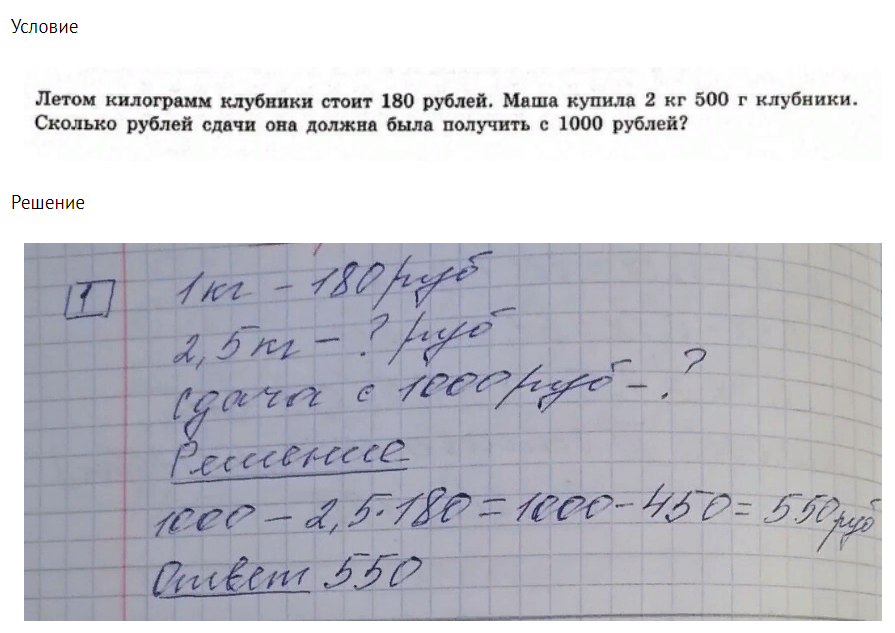 Условие
Летом килограмм клубники стоит 180 рублей. Маша купила 2 кг 500 г клубники.
Сколько рублей сдачи она должна была получить с 1000 рублей?
Решение
1 1кг – 180 руб
2,5 кг – ? руб
Сдача с 1000 руб – ?
Решение
1000 – 2,5·180 = 1000 – 450 = 550 руб
Ответ 550